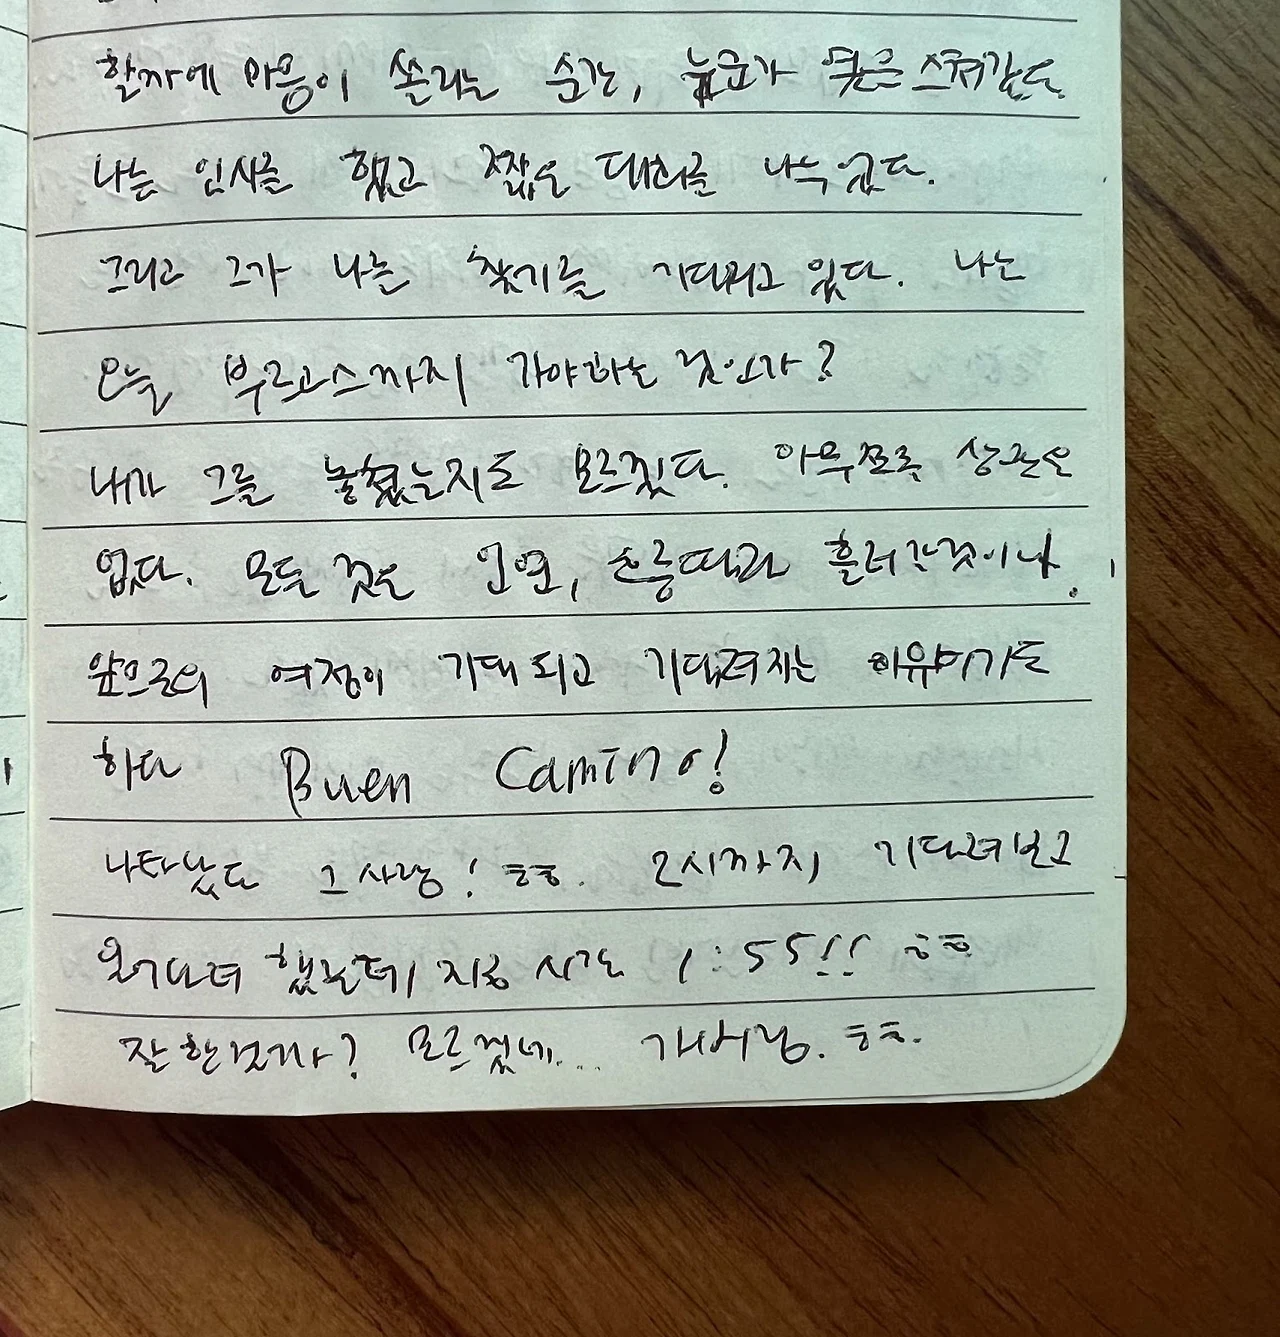 할까에 마음이 쏠리는 순간, 누군가 옆을 스쳐갔다.
나는 인사를 했고 짧은 대화를 나누었다.
그리고 그가 나를 찾기를 기다리고 있다. 나는
오늘 부르고스까지 가야하는 것인가?
내가 그를 놓쳤는지도 모르겠다. 아무쪼록 상관은
없다. 모든 것은 인연, 흐름따라 흘러간것이니.
앞으로의 여정이 기대되고 기다려지는 이유이기도
하다 Buen Camino!
나타났다 그사람! ㅎㅎ. 2시까지 기다려보고
올거다려 했는데 지금 시간 1:55!! ㅎㅎ
잘한걸까? 모르겠네... ㅎㅎ.